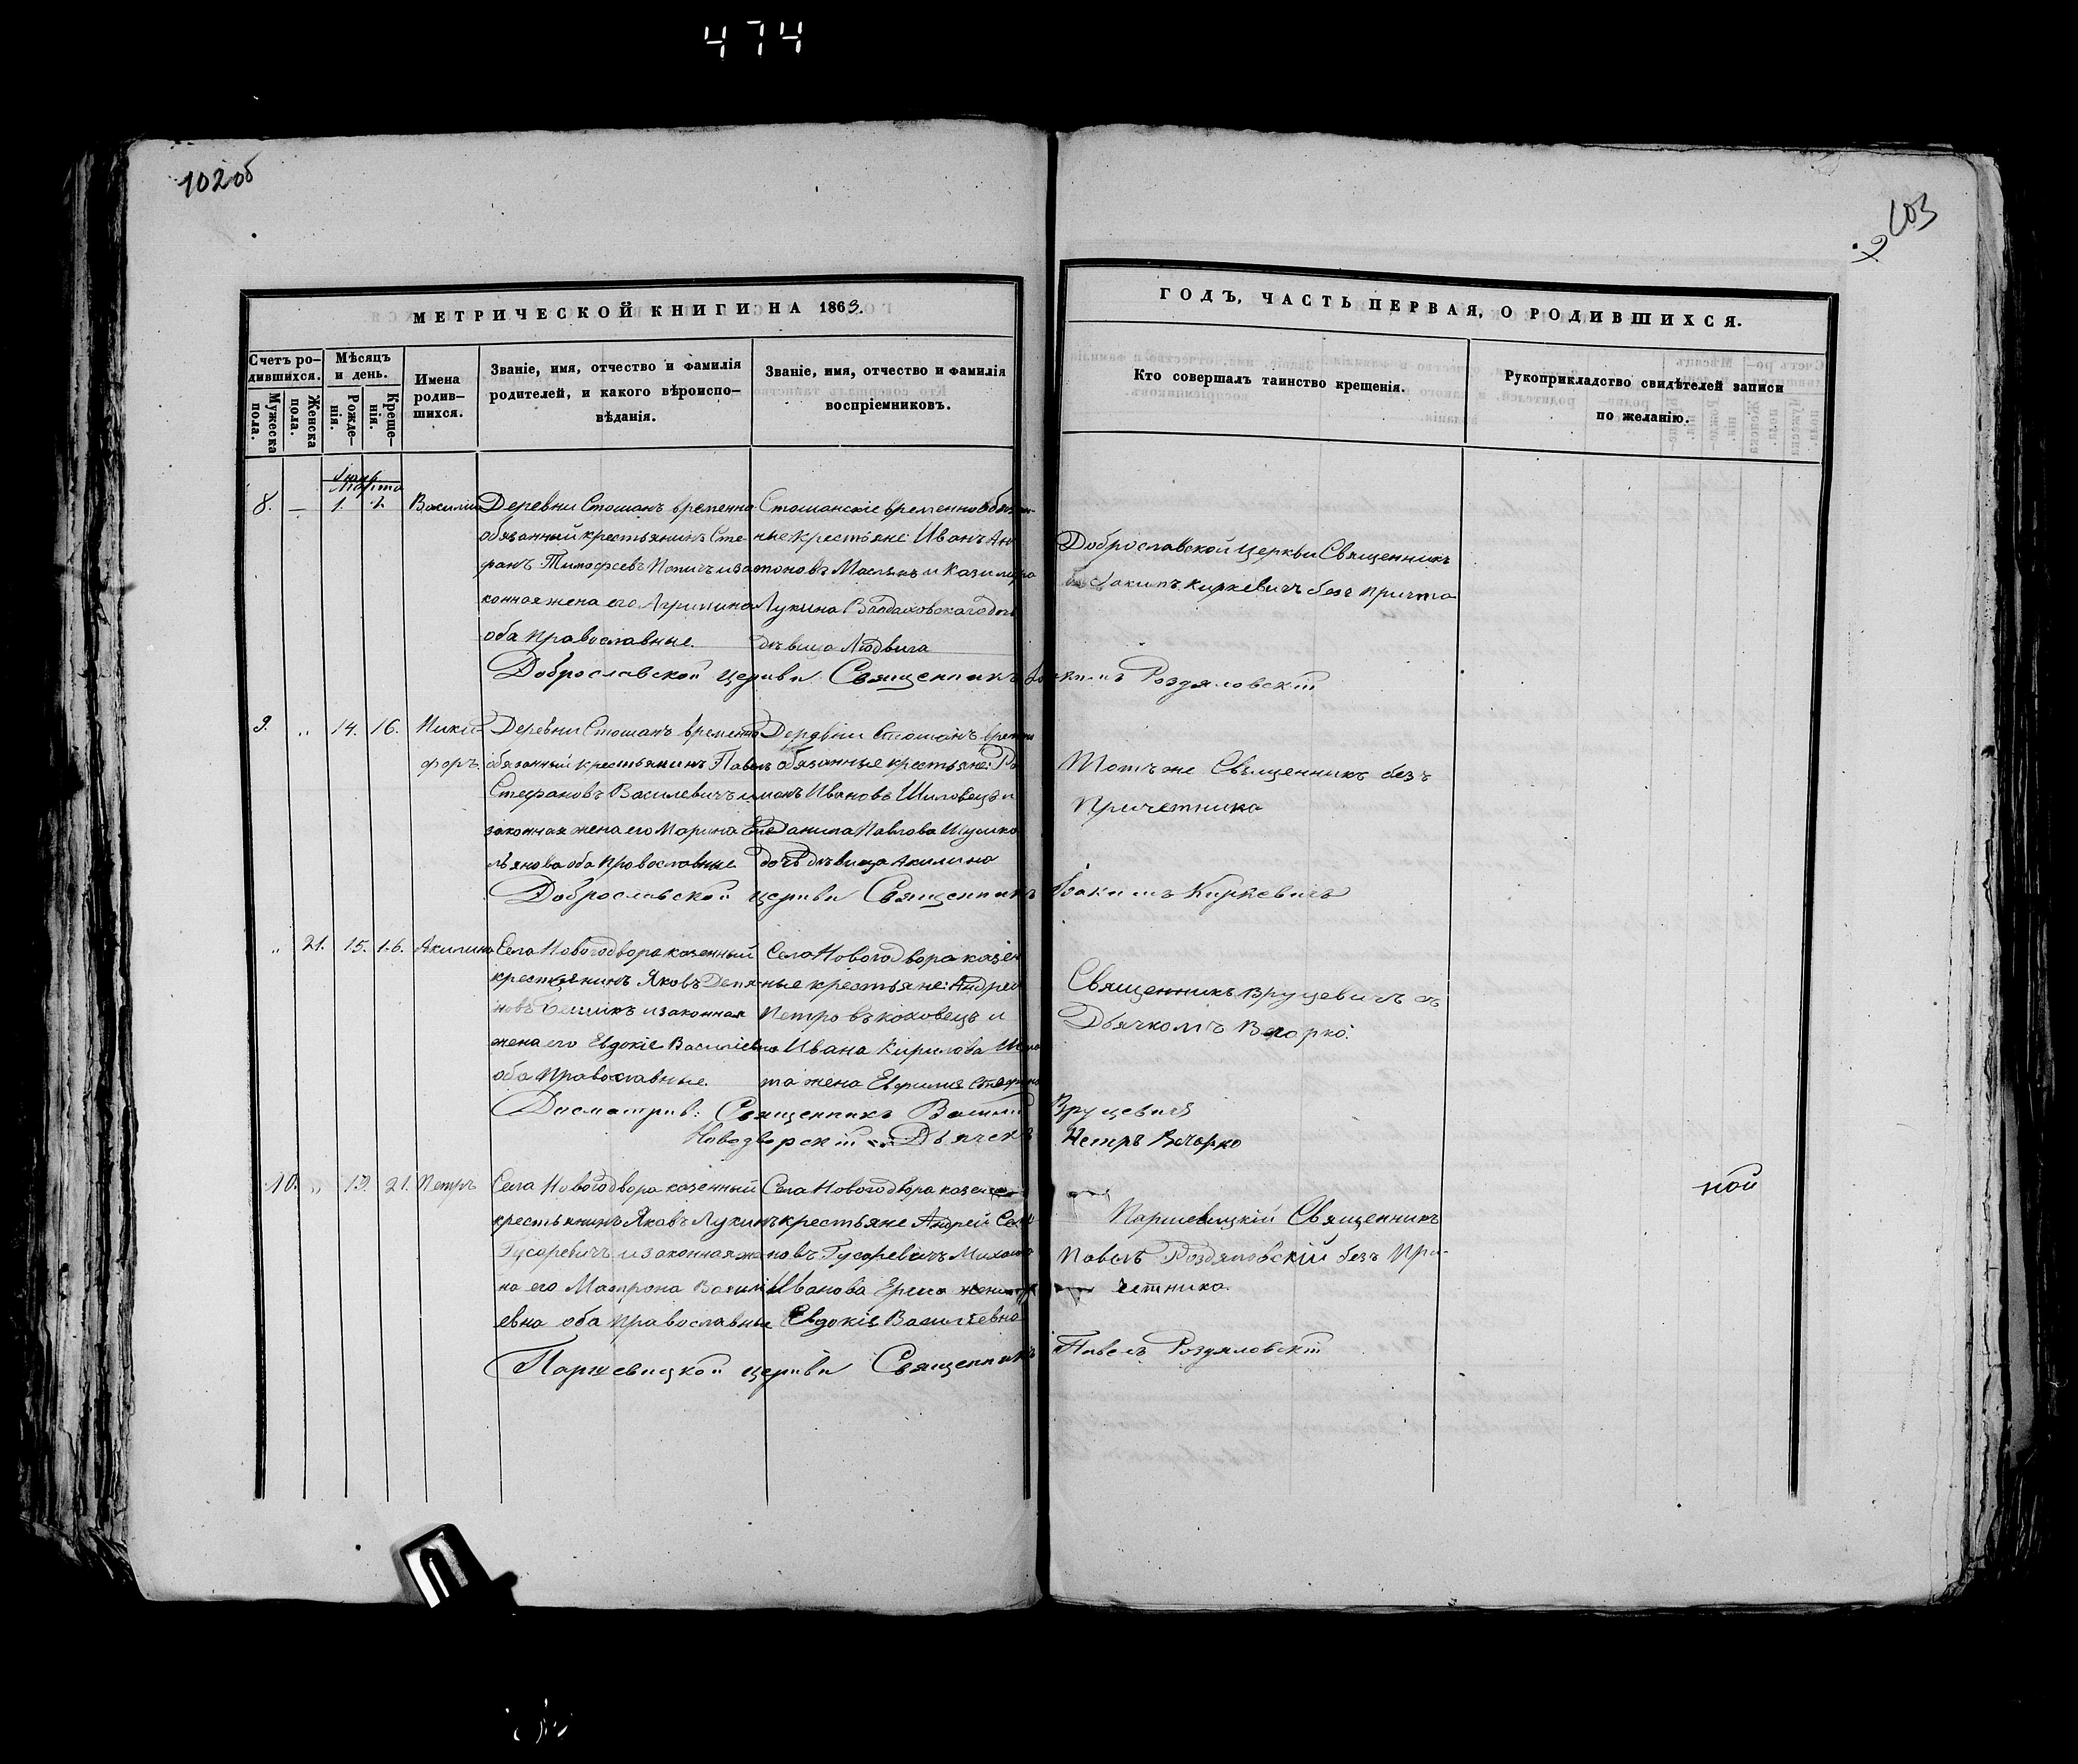 474
102 об
103
МЕТРИЧЕСКОЙ КНИГИ НА 1863.
ГОДЪ, ЧАСТЬ ПЕРВАЯ, О РОДИВШИХСЯ.
Счетъ ро-
дившихся.
Мужеска
пола.
Женска
пола.
Мѣсяцъ
и день.
Рожде-
нія.
Креще-
нія.
Имена
родив-
шихся.
Званіе, имя, отчество и фамилія
родителей, и какого вѣроиспо-
вѣданія.
Званіе, имя, отчество и фамилія
воспріемниковъ.
Кто совершалъ таинство крещенія.
Рукоприкладство свидѣтелей записи
по желанію.
Марта
8. — 1.
Василій
Деревни Стошанъ временно
обязанный крестьянинъ Сте-
фанъ Тимофеевъ
конная жена его Агрипина
оба православные.
Стошанскіе временнообязан-
ные крестьяне: Иванъ Ан
тоновъ и Казимира
Лукина
дѣвица Людвига
Доброславской Церкви Священникъ
Іоакимъ Киркевичъ безъ причта
Доброславской церкви Священникъ
9. „ 14. 16.
Ники-
форъ.
Деревни Стошанъ временно
обязанный крестьянинъ Павелъ
Стефановъ Василевичъ и
законная жена его Марина
оба православные
Деревни Стошанъ времен
обязанные крестьяне: Ро
манъ Ивановъ Шиловецъ и
Данила Павлова
дочь дѣвица Акилина
Тотъ же Священникъ безъ
Причетника
Доброславской церкви Священникъ Іоакимъ Киркевичъ
„ 21. 15. 16.
Акилина
Села Новогодвора казенный
крестьянинъ Яковъ Демя
новъ и законная
жена его Евдокіе Василіевна
оба Православные.
Села Новогодвора казен
ные крестьяне: Андрей
Петровъ Коховецъ и
Ивана Кирилова
та жена Евфимія
Священникъ Вруцевичъ съ
Дьячкомъ Вечорко.
Досматрив: Священникъ Вруцевичъ
Новодворскій Дьячекъ Петръ Вечорко
10. „ 19. 21.
Петръ
Села Новогодвора казенный
крестьянинъ Яковъ Лукинъ
Гусаревичъ и законная же
на его Матрона Васили
евна оба православные
Села Новогодвора казен
крестьяне Андрей Семе
новъ Гусаревичъ
Иванова жена
Евдокія Василіевна
ной
Паршевицкій Священникъ
Павелъ Роздяловскій безъ При-
четника.
Паршевицкой церкви Священникъ Павелъ Роздяловскій